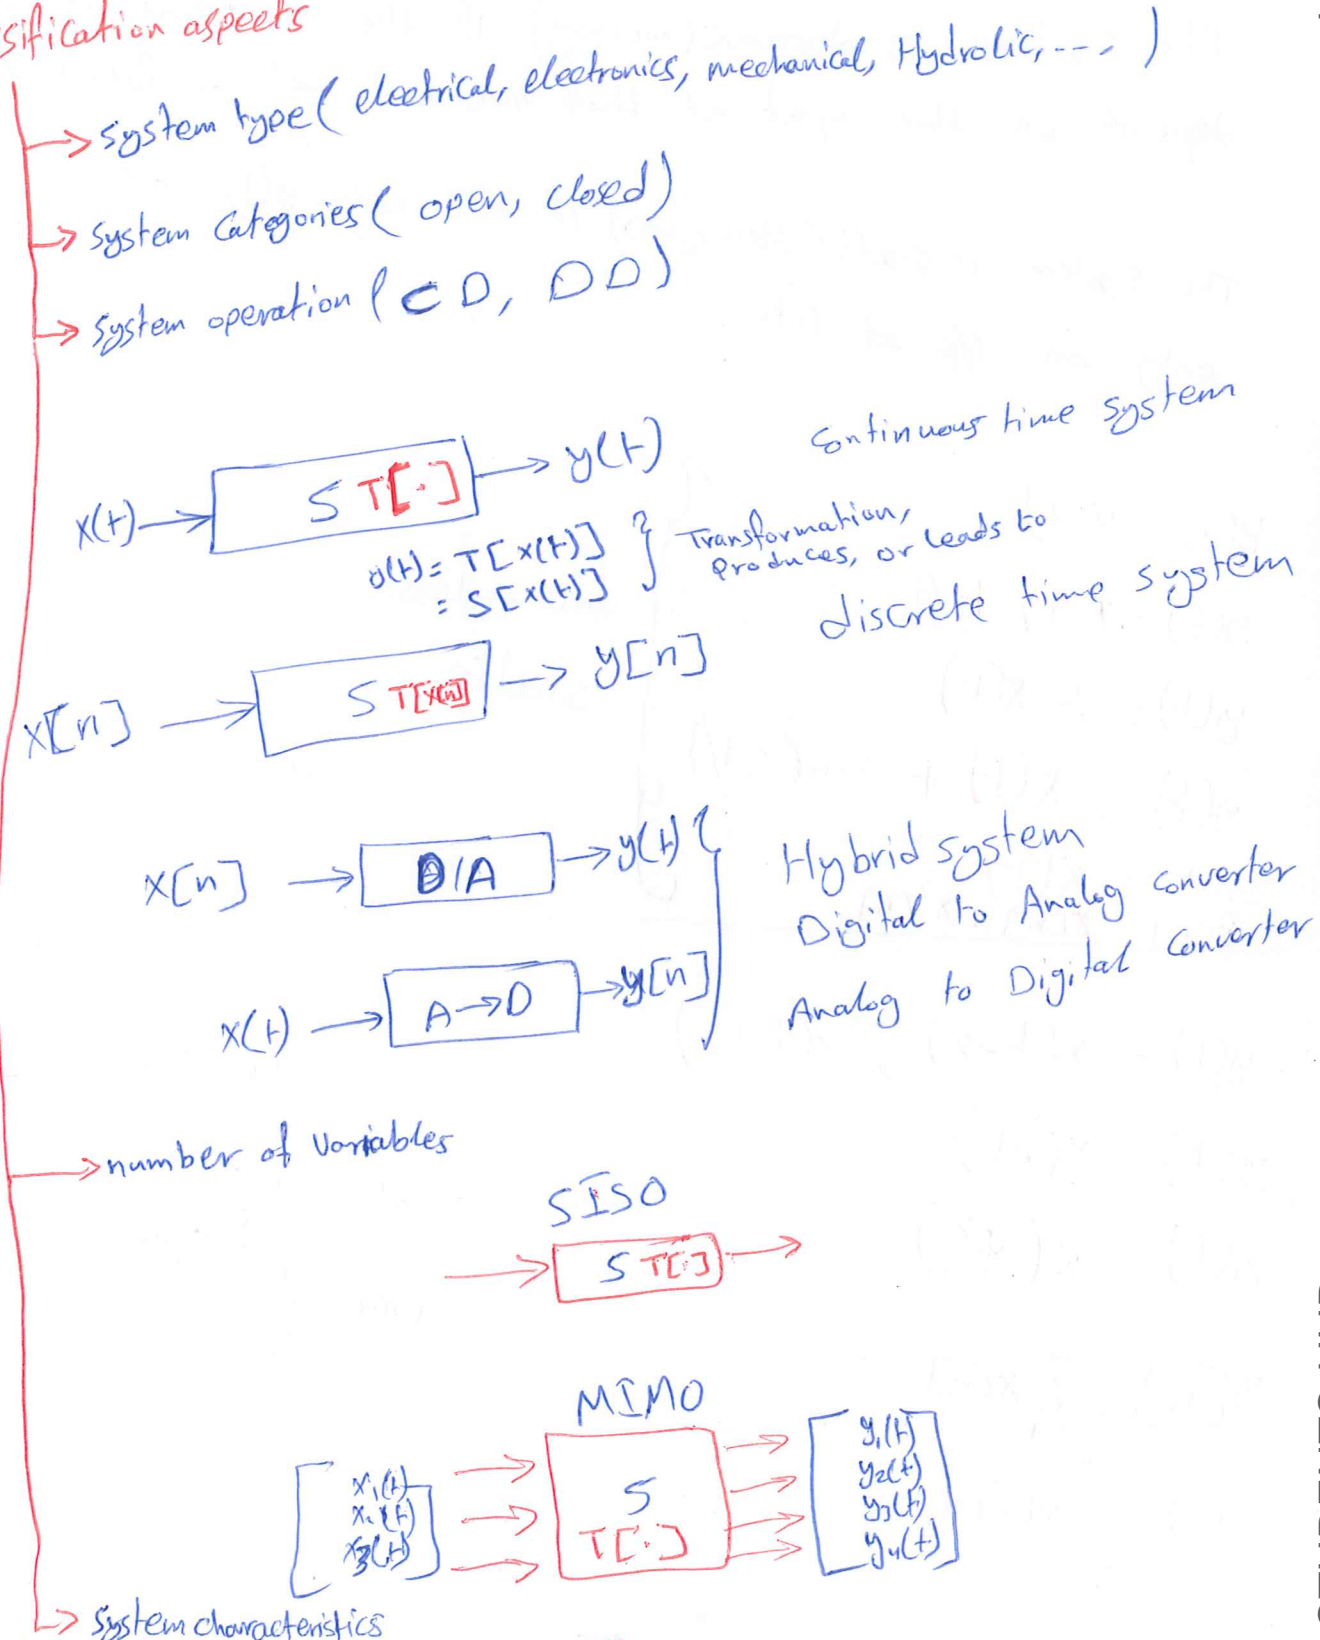 sification aspects
System type( electrical, electronics, mechanical, Hydrolic, ---, )
System Categories( open, closed)
System operation( CD, DD)
Continuous time system
x(t) S T[.] y(t)
y(t) = T[x(t)]
= S[x(t)]
Transformation,
Produces, or leads to
discrete time system
x[n] S T[x[n]] y[n]
x[n] D/A y(t)
Hybrid system
Digital to Analog Converter
x(t) A→D y[n]
Analog to Digital Converter
number of Variables
SISO
S T[.]
MIMO
x1(t)
x2(t)
x3(t)
S
T[.]
y1(t)
y2(t)
y3(t)
y4(t)
System characteristics